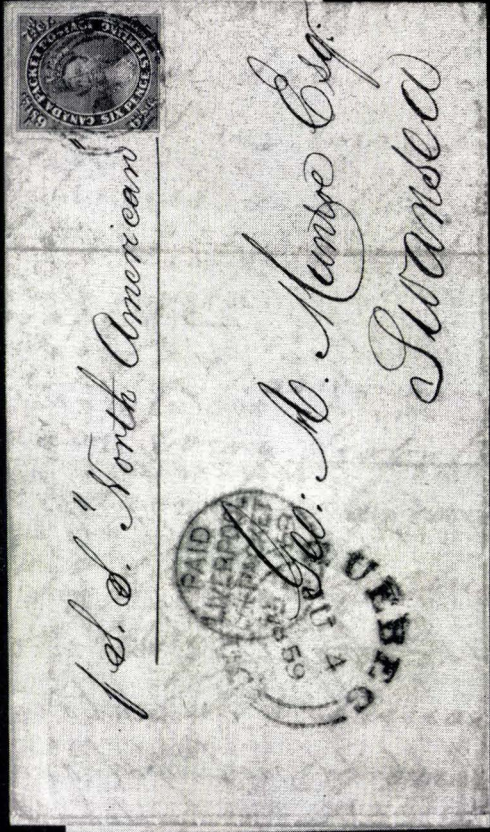 CANADA PACKET POSTAGE
SIX PENCE STERLING
p S. S. "North American
Geo: M. Munroe Esq.
Swansea
PAID
LIVERPOOL
PACKET
QUEBEC
AU 4
1859